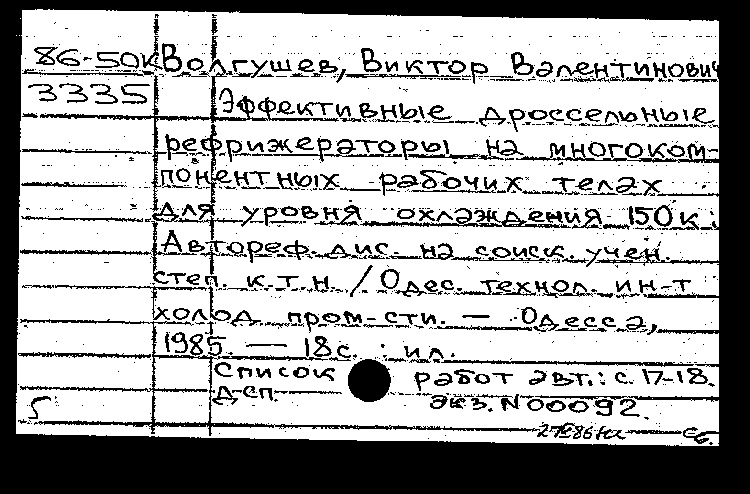 86-50к Волгушев, Виктор Валентинович
3335 Эффективные дроссельные
рефрижераторы на многоком-
понентных рабочих телах
для уровня охлаждения 150к:
Автореф. дис. на соиск. учен.
степ. к.т.н. / Одес. технол. ин-т
холод. пром-сти. — Одесса,
1985. — 18с. : ил.
Список работ авт.: с. 17-18.
Д-сп. экз. N00092.
5
сб.